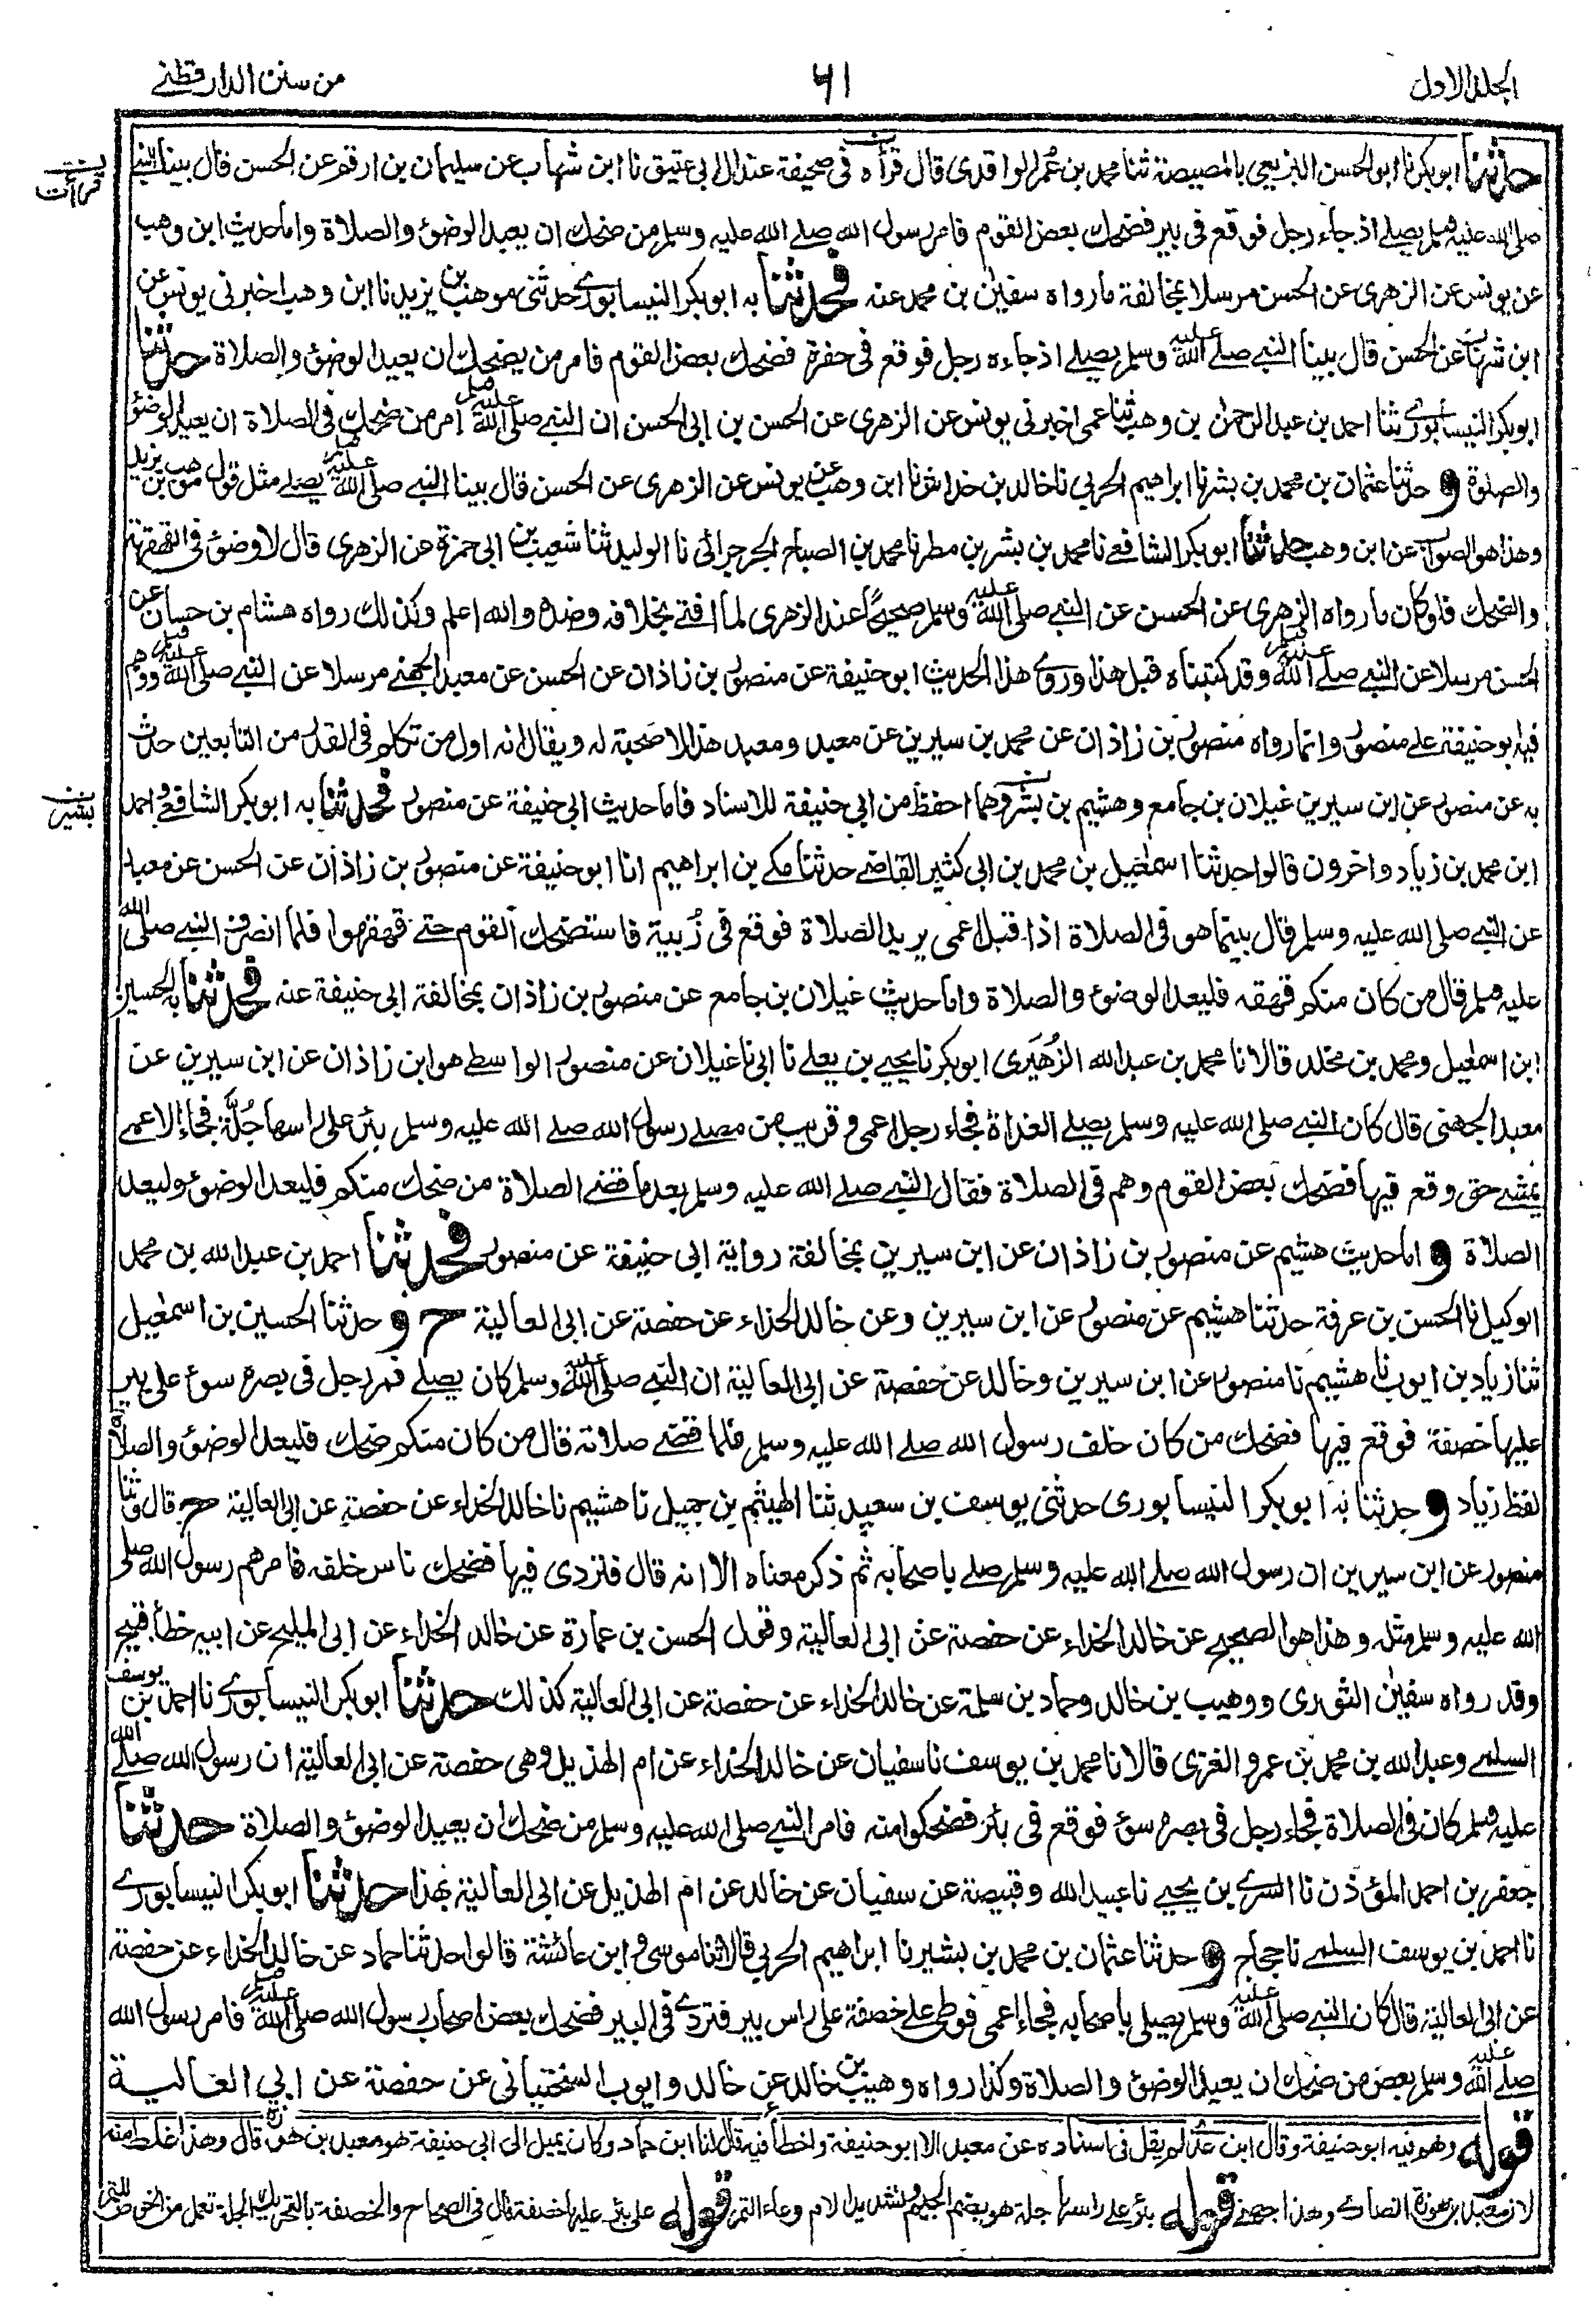 الجلد الاول
٦١
من سنن الدارقطنے
حدثنا ابوبكر نا ابو الحسن البزيعي بالمصيصة ثنا محمد بن عمر الواقدى قال قرأه فى صحيفة عند ال ابى عتيق نا ابن شهاب عن سليمان بن ارقم عن الحسن قال بينا النبي
ن قرأت
صلى الله عليه وسلم يصلے اذ جاء رجل فوقع فى بير فضحك بعض القوم فامر رسول الله صلے الله عليه وسلم من ضحك ان يعيد الوضوء والصلاة واما حديث ابن وهب
عن يونس عن الزهرى عن الحسن مرسلا بمخالفة ما رواه سفين بن محمد عنه فحدثنا به ابوبكر النيسابورے حدثنى موهب بن يزيد نا ابن وهب اخبرنى يونس عن
ابن شهاب عن الحسن قال بينا النبي صلے الله عليه وسلم يصلے اذ جاءه رجل فوقع فى حفرة فضحك بعض القوم فامر من يضحك ان يعيد الوضوء والصلاة حدثنا
ابوبكر النيسابورے ثنا احمد بن عبد الرحمن بن وهب ثنا عمى اخبرنى يونس عن الزهرى عن الحسن بن ابى الحسن ان النبي صلى الله عليه وسلم امر من ضحك فى الصلاة ان يعيد الوضوء
والصلوة و حدثنا عثمان بن محمد بن بشر نا ابراهيم الحربي نا خالد بن خداش نا ابن وهب عن يونس عن الزهرى عن الحسن قال بينا النبي صلى الله عليه وسلم يصلے مثل قول موهب بن يزيد
وهذا هو الصواب عن ابن وهب حدثنا ابوبكر الشافعے نا محمد بن بشر بن مطر نا محمد بن الصباح الجرجرائى نا الوليد ثنا شعيب بن ابى حمزة عن الزهرى قال لا وضوء فى القهقهة
والضحك فلو كان ما رواه الزهرى عن الحسن عن النبي صلى الله عليه وسلم صحيحًا عند الزهرى لما افتے بخلافه وضده والله اعلم وكذلك رواه هشام بن حسان عن
الحسن مرسلا عن النبي صلے الله عليه وسلم وقد كتبناه قبل هذا وروے هذا الحديث ابو حنيفة عن منصور بن زاذان عن الحسن عن معبد الجهنے مرسلا عن النبي صلى الله عليه وسلم ووهم
فيه ابو حنيفة علے منصور وانما رواه منصور بن زاذان عن محمد بن سيرين عن معبد ومعبد هذا لا صحبة له ويقال انه اول من تكلم فى القدر من التابعين حدث
به عن منصور عن ابن سيرين غيلان بن جامع وهشيم بن بشر وهما احفظ من ابى حنيفة للاسناد فاما حديث ابى حنيفة عن منصور فحدثنا به ابوبكر الشافعے واحمد
ن بشير
ابن محمد بن زياد واخرون قالوا حدثنا اسمعيل بن محمد بن ابى كثير القاضے حدثنا مكے بن ابراهيم انا ابو حنيفة عن منصور بن زاذان عن الحسن عن معبد
عن النبي صلى الله عليه وسلم قال بينما هو فى الصلاة اذ اقبل اعمى يريد الصلاة فوقع فى زُبية فاستضحك القوم حتے قهقهوا فلما انصرف النبي صلى الله
عليه وسلم قال من كان منكم قهقه فليعد الوضوء والصلاة واما حديث غيلان بن جامع عن منصور بن زاذان بمخالفة ابى حنيفة عنه فحدثنا به الحسين
ابن اسمعيل ومحمد بن مخلد قالا نا محمد بن عبد الله الزُهَيرى ابوبكر نا يحيى بن يعلے نا ابى نا غيلان عن منصور الواسطے هو ابن زاذان عن ابن سيرين عن
معبد الجهنى قال كان النبي صلى الله عليه وسلم يصلے الغداة فجاء رجل اعمى وقريب من مصلے رسول الله صلے الله عليه وسلم بئر على راسها جُلَّة فجاء الاعمى
يمشے حتى وقع فيها فضحك بعض القوم وهم فى الصلاة فقال النبي صلے الله عليه وسلم بعد ما قضے الصلاة من ضحك منكم فليعد الوضوء وليعد
الصلاة و اما حديث هشيم عن منصور بن زاذان عن ابن سيرين بمخالفة رواية ابى حنيفة عن منصور فحدثنا احمد بن عبد الله بن محمد
الوكيل نا الحسن بن عرفة حدثنا هشيم عن منصور عن ابن سيرين وعن خالد الحذاء عن حفصة عن ابى العالية ح و حدثنا الحسين بن اسمعيل
ثنا زياد بن ايوب نا هشيم نا منصور عن ابن سيرين وخالد عن حفصة عن ابى العالية ان النبي صلى الله عليه وسلم كان يصلے فمر رجل فى بصره سوء على بير
عليها خصفة فوقع فيها فضحك من كان خلف رسول الله صلے الله عليه وسلم فلما قضے صلاته قال من كان منكم ضحك فليعد الوضوء والصلاة
لفظ زياد و حدثنا به ابوبكر النيسابورى حدثنى يوسف بن سعيد ثنا الهيثم بن جميل نا هشيم نا خالد الحذاء عن حفصة عن ابى العالية ح قال وثنا
منصور عن ابن سيرين ان رسول الله صلے الله عليه وسلم صلے باصحابه ثم ذكر معناه الا انه قال فتردى فيها فضحك ناس خلفه فامرهم رسول الله صلى
الله عليه وسلم مثله وهذا هو الصحيح عن خالد الحذاء عن حفصة عن ابى العالية وقول الحسن بن عمارة عن خالد الحذاء عن ابى المليح عن ابيه خطأ قبيح
وقد رواه سفين الثورى ووهيب بن خالد وحماد بن سلمة عن خالد الحذاء عن حفصة عن ابى العالية كذلك حدثنا ابوبكر النيسابورے نا احمد بن يوسف
السلمے وعبد الله بن محمد بن عمرو الغزى قالا نا محمد بن يوسف نا سفيان عن خالد الحذاء عن ام الهذيل وهى حفصة عن ابى العالية ان رسول الله صلے الله
عليه وسلم كان فى الصلاة فجاء رجل فى بصره سوء فوقع فى بئر فضحكوا منه فامر النبي صلى الله عليه وسلم من ضحك ان يعيد الوضوء والصلاة حدثنا
جعفر بن احمد المؤذن نا السرے بن يحيے نا عبيد الله وقبيصة عن سفيان عن خالد عن ام الهذيل عن ابى العالية بهذا حدثنا ابوبكر النيسابورے
نا احمد بن يوسف السلمے نا حجاج و حدثنا عثمان بن محمد بن بشير نا ابراهيم الحربي قالا ثنا موسى و ابن عائشة قالوا حدثنا حماد عن خالد الحذاء عن حفصة
عن ابى العالية قال كان النبي صلى الله عليه وسلم يصلى باصحابه فجاء اعمى فوطى على خصفة على راس بير فتردے فى البير فضحك بعض اصحاب رسول الله صلى الله عليه وسلم فامر رسول الله
صلے الله عليه وسلم بعض من ضحك ان يعيد الوضوء والصلاة وكذا رواه وهيب بن خالد عن خالد وايوب السختيانى عن حفصة عن ابي العالية
قوله وهم فيه ابو حنيفة وقال ابن عدى لم يقل فى اسناده عن معبد الا ابو حنيفة واخطأ فيه قال لنا ابن حماد وكان يميل الى ابى حنيفة هو معبد بن هوذة قال وهذا غلط منه
لان معبد بن هوذة انصارى وهذا جهنے قوله بئر على راسها جلة هو بضم الجيم وتشديد اللام وعاء التمر قوله على بئر عليها خصفة قال فى الصحاح والخصفة بالتحريك الجلة تعمل من الخوص للتمر